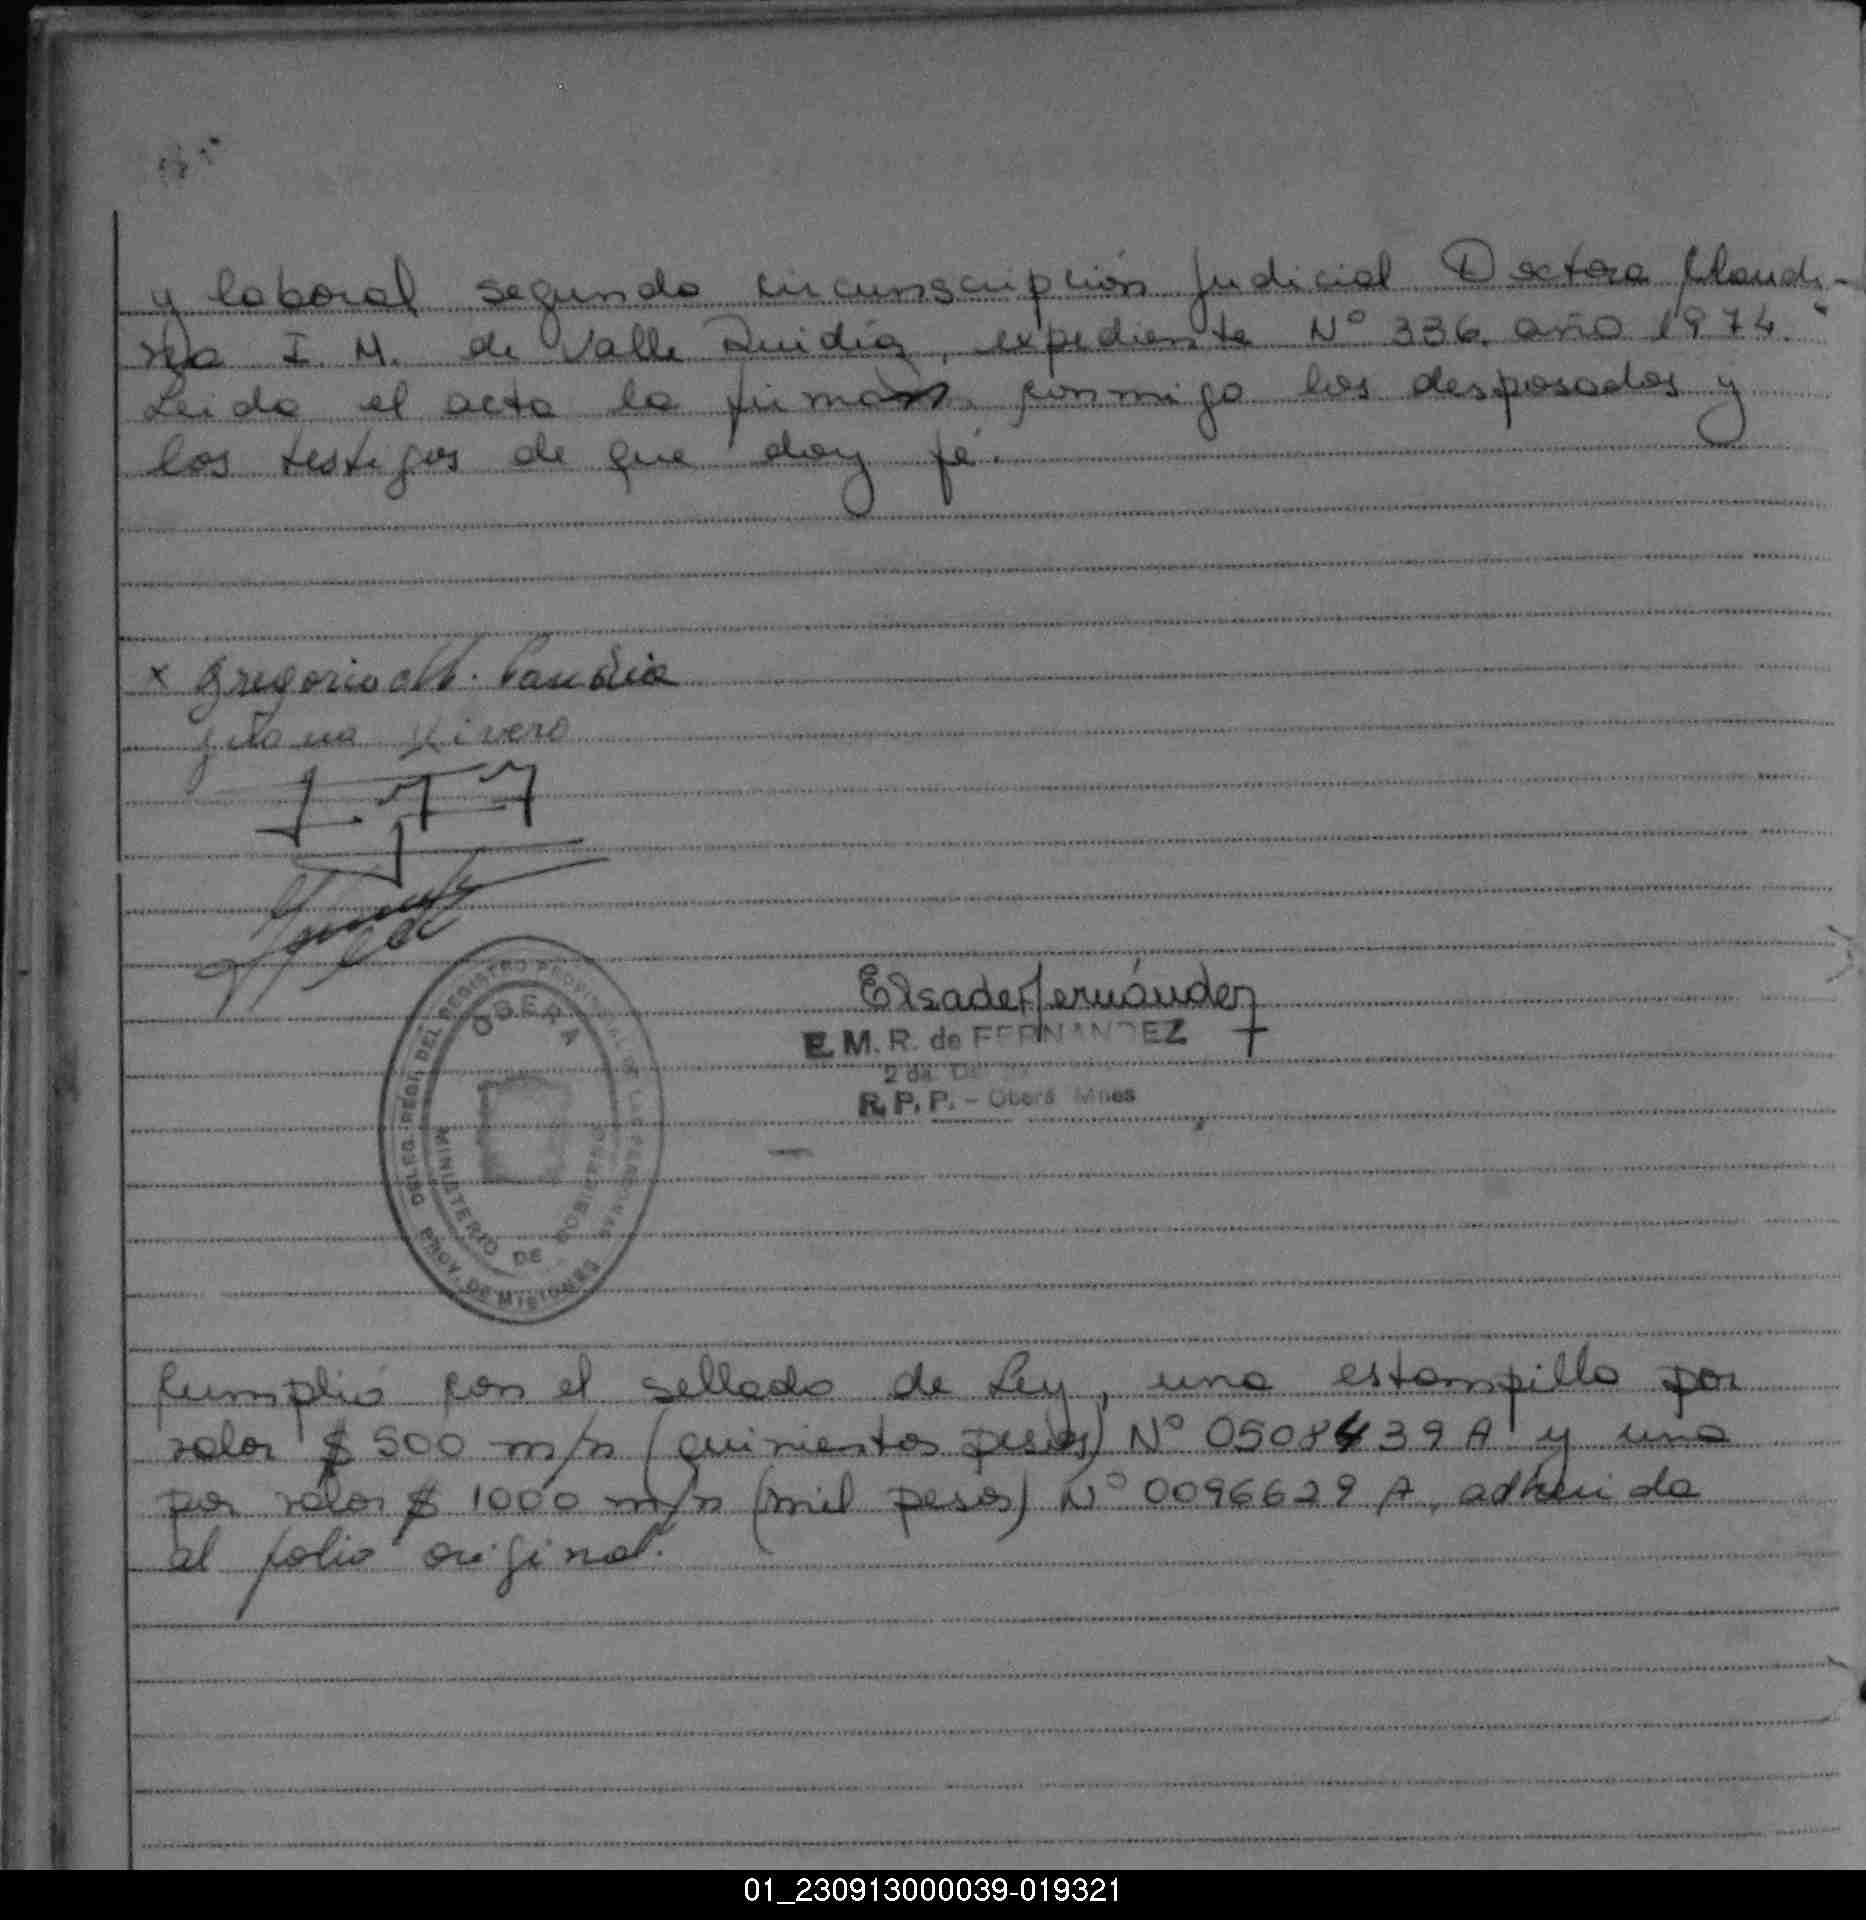 y laboral segunda circunscripción Judicial Doctora Claudi-
na I. M. de Valle Quidiz, expediente N° 336, año 1974.
Leida el acta la firman conmigo los desposados y
los testigos de que doy fé.
x Gregorio
Juana Rivero
Elsa de Fernández
E. M. R. de FERNANDEZ
2 da.
R. P. P. - Oberá Mnes
DELEG. REGI DEL REGISTRO PROVINCIAL DE LAS PERSONAS
OBERA
MINISTERIO DE GOBIERNO
PROV. DE MISIONES
Cumplió con el sellado de Ley, una estampilla por
valor $ 500 m/n (quinientos pesos) N° 0508439 A y una
por valor $ 1000 m/n (mil pesos) N° 0096629 A, adherida
al folio original.
01_230913000039-019321